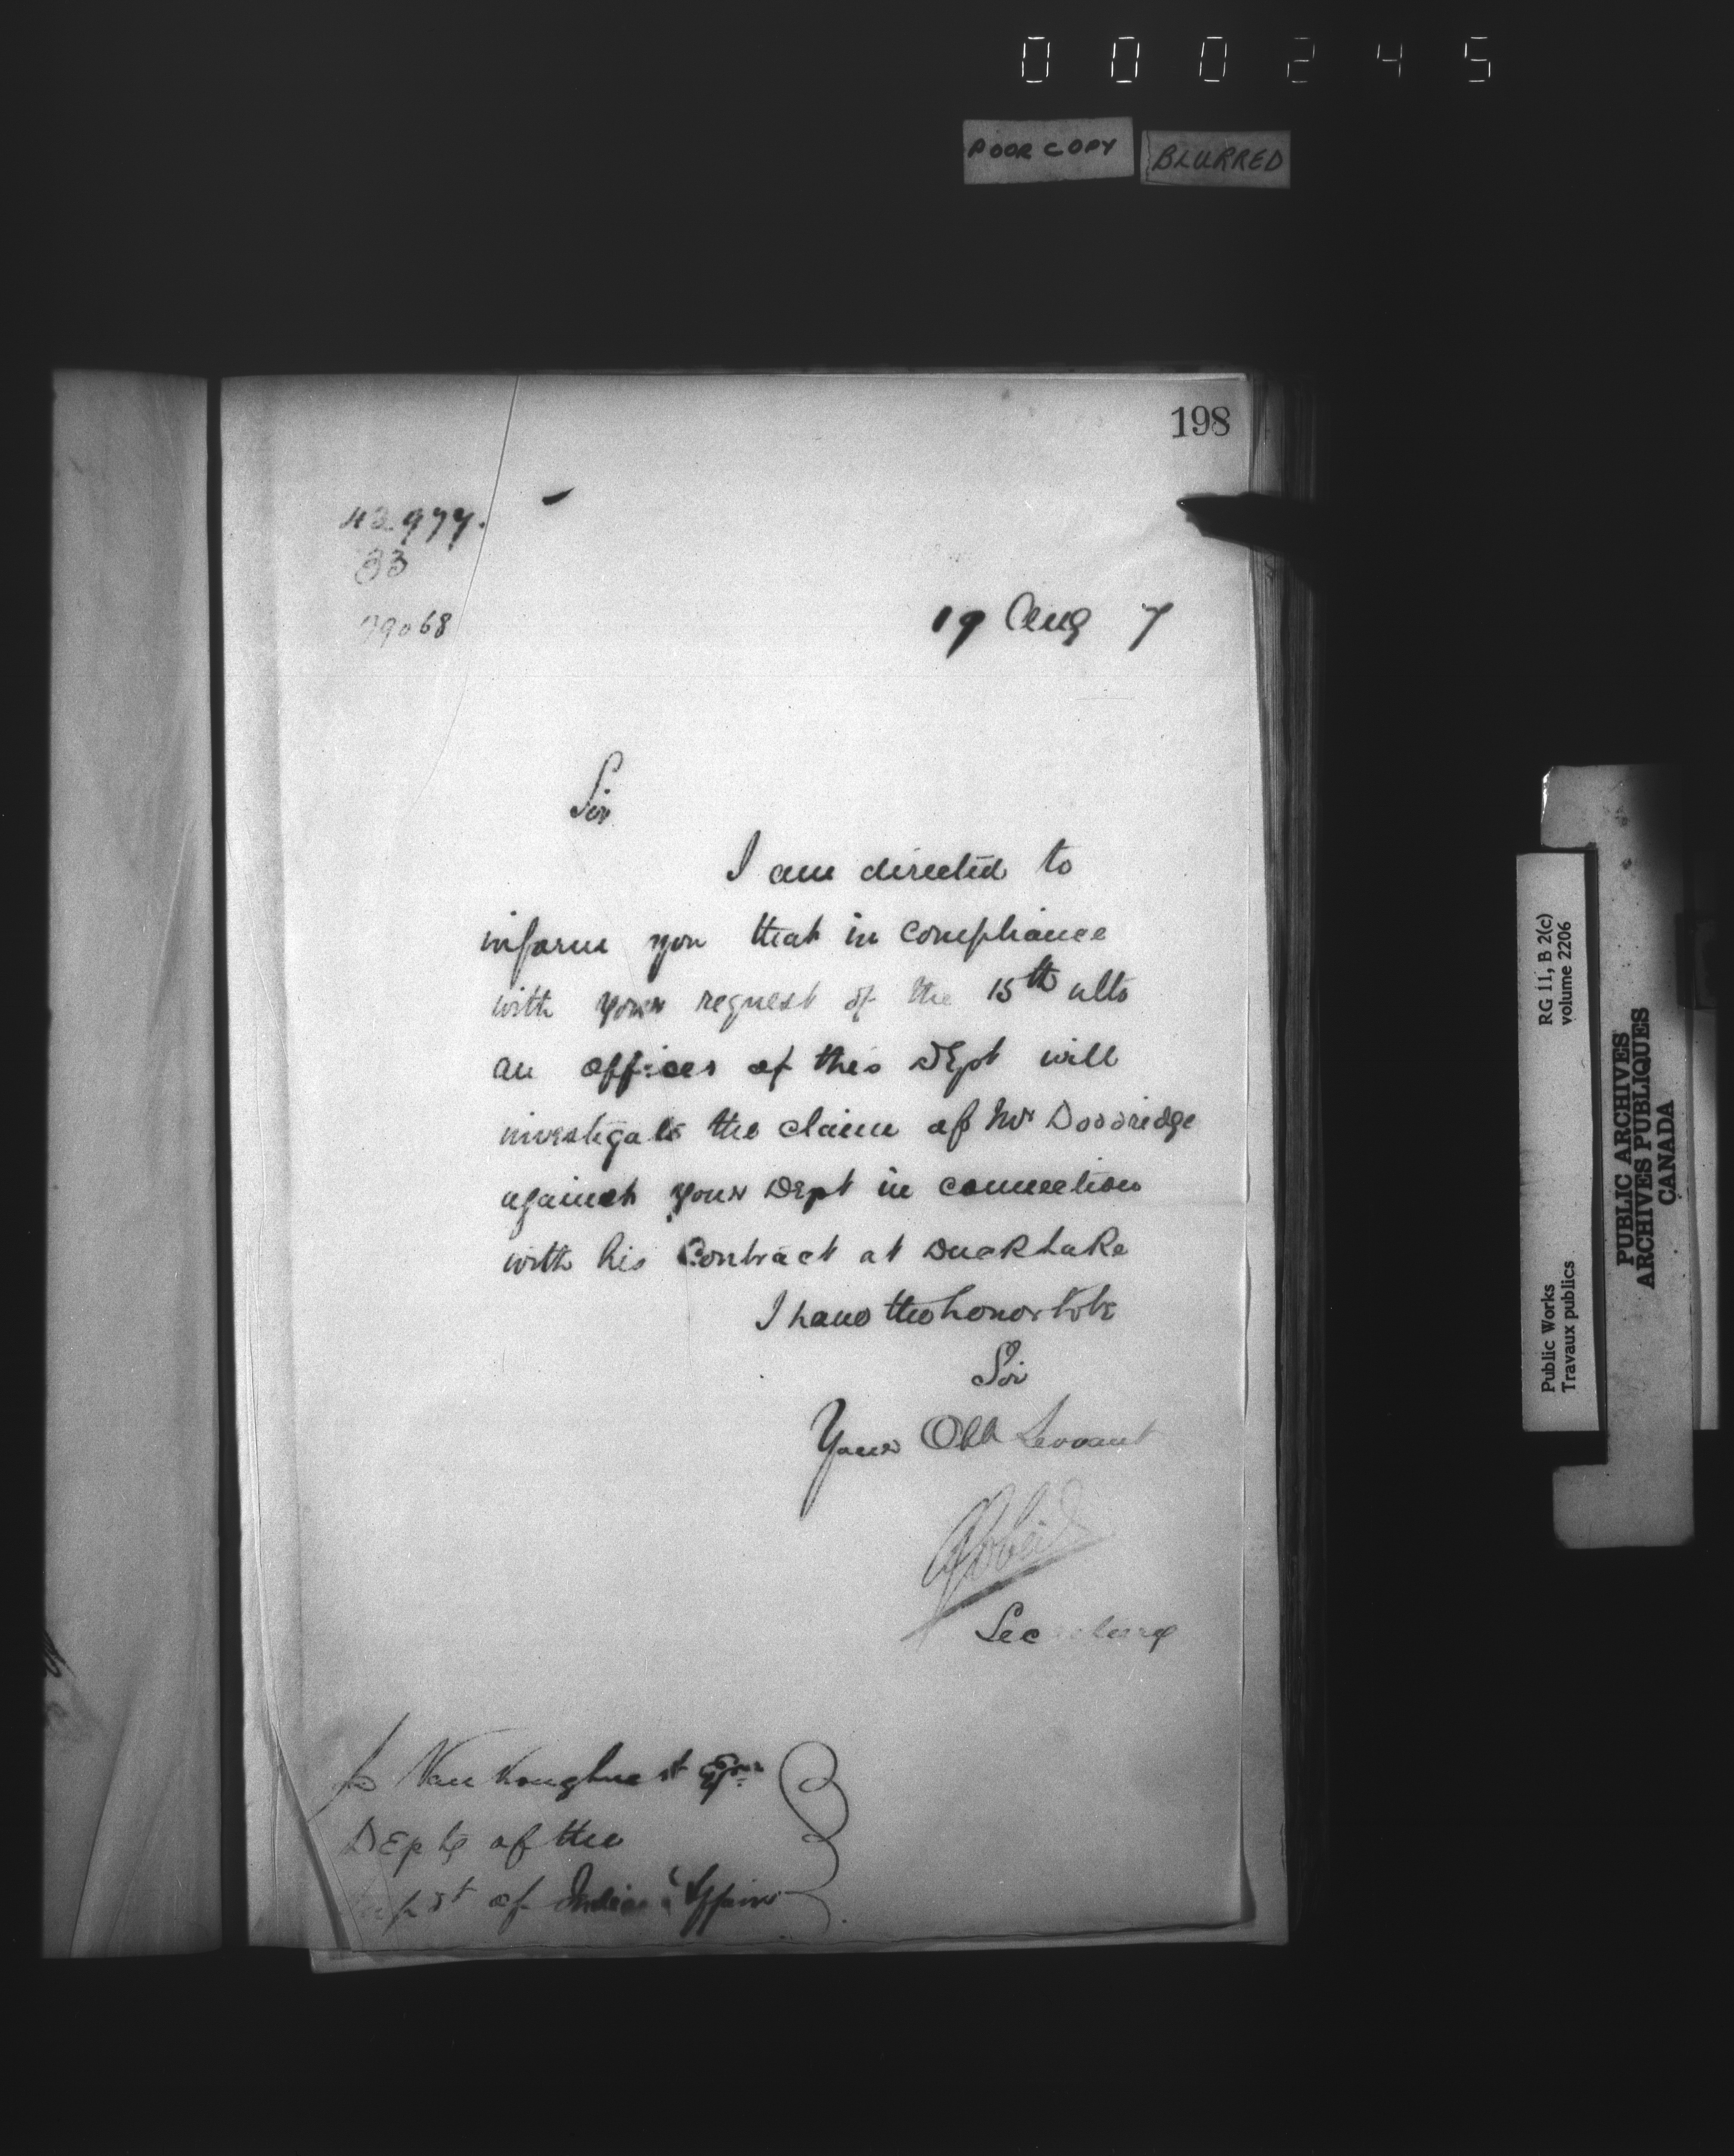 000245
POOR COPY
BLURRED
198
42977.
33
79068
19 Aug 7
Sir
I am directed to
inform you that in compliance
with your request of the 15th ulto
an officer of this DEpt will
investigate the claim of Mr Doddridge
against your DEpt in connection
with his Contract at Duck Lake
I have the honor to be
Sir
Your Obt Servant
Secretary
Van Koughnet Esqr
DEpty of the
Supdt of Indian Affairs
RG 11, B 2(c)
volume 2206
Public Works
Travaux publics
PUBLIC ARCHIVES
ARCHIVES PUBLIQUES
CANADA